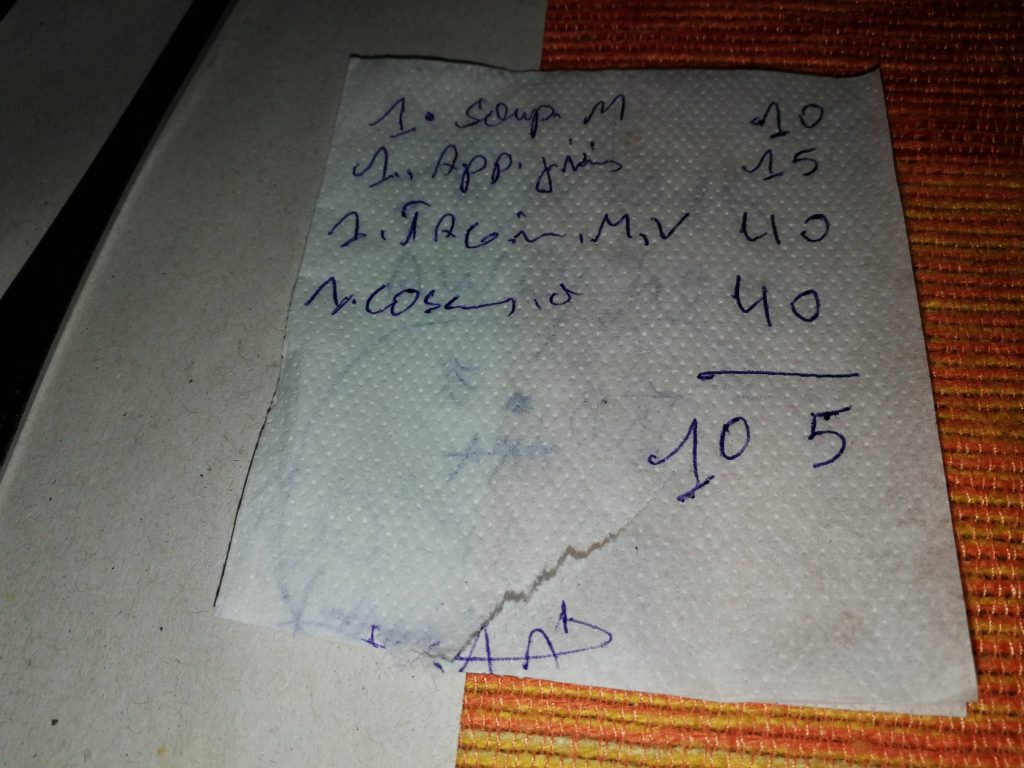 1. Soup. M 10
1. App. 15
1. TAGin, M, V 40
1. COSC 40
105